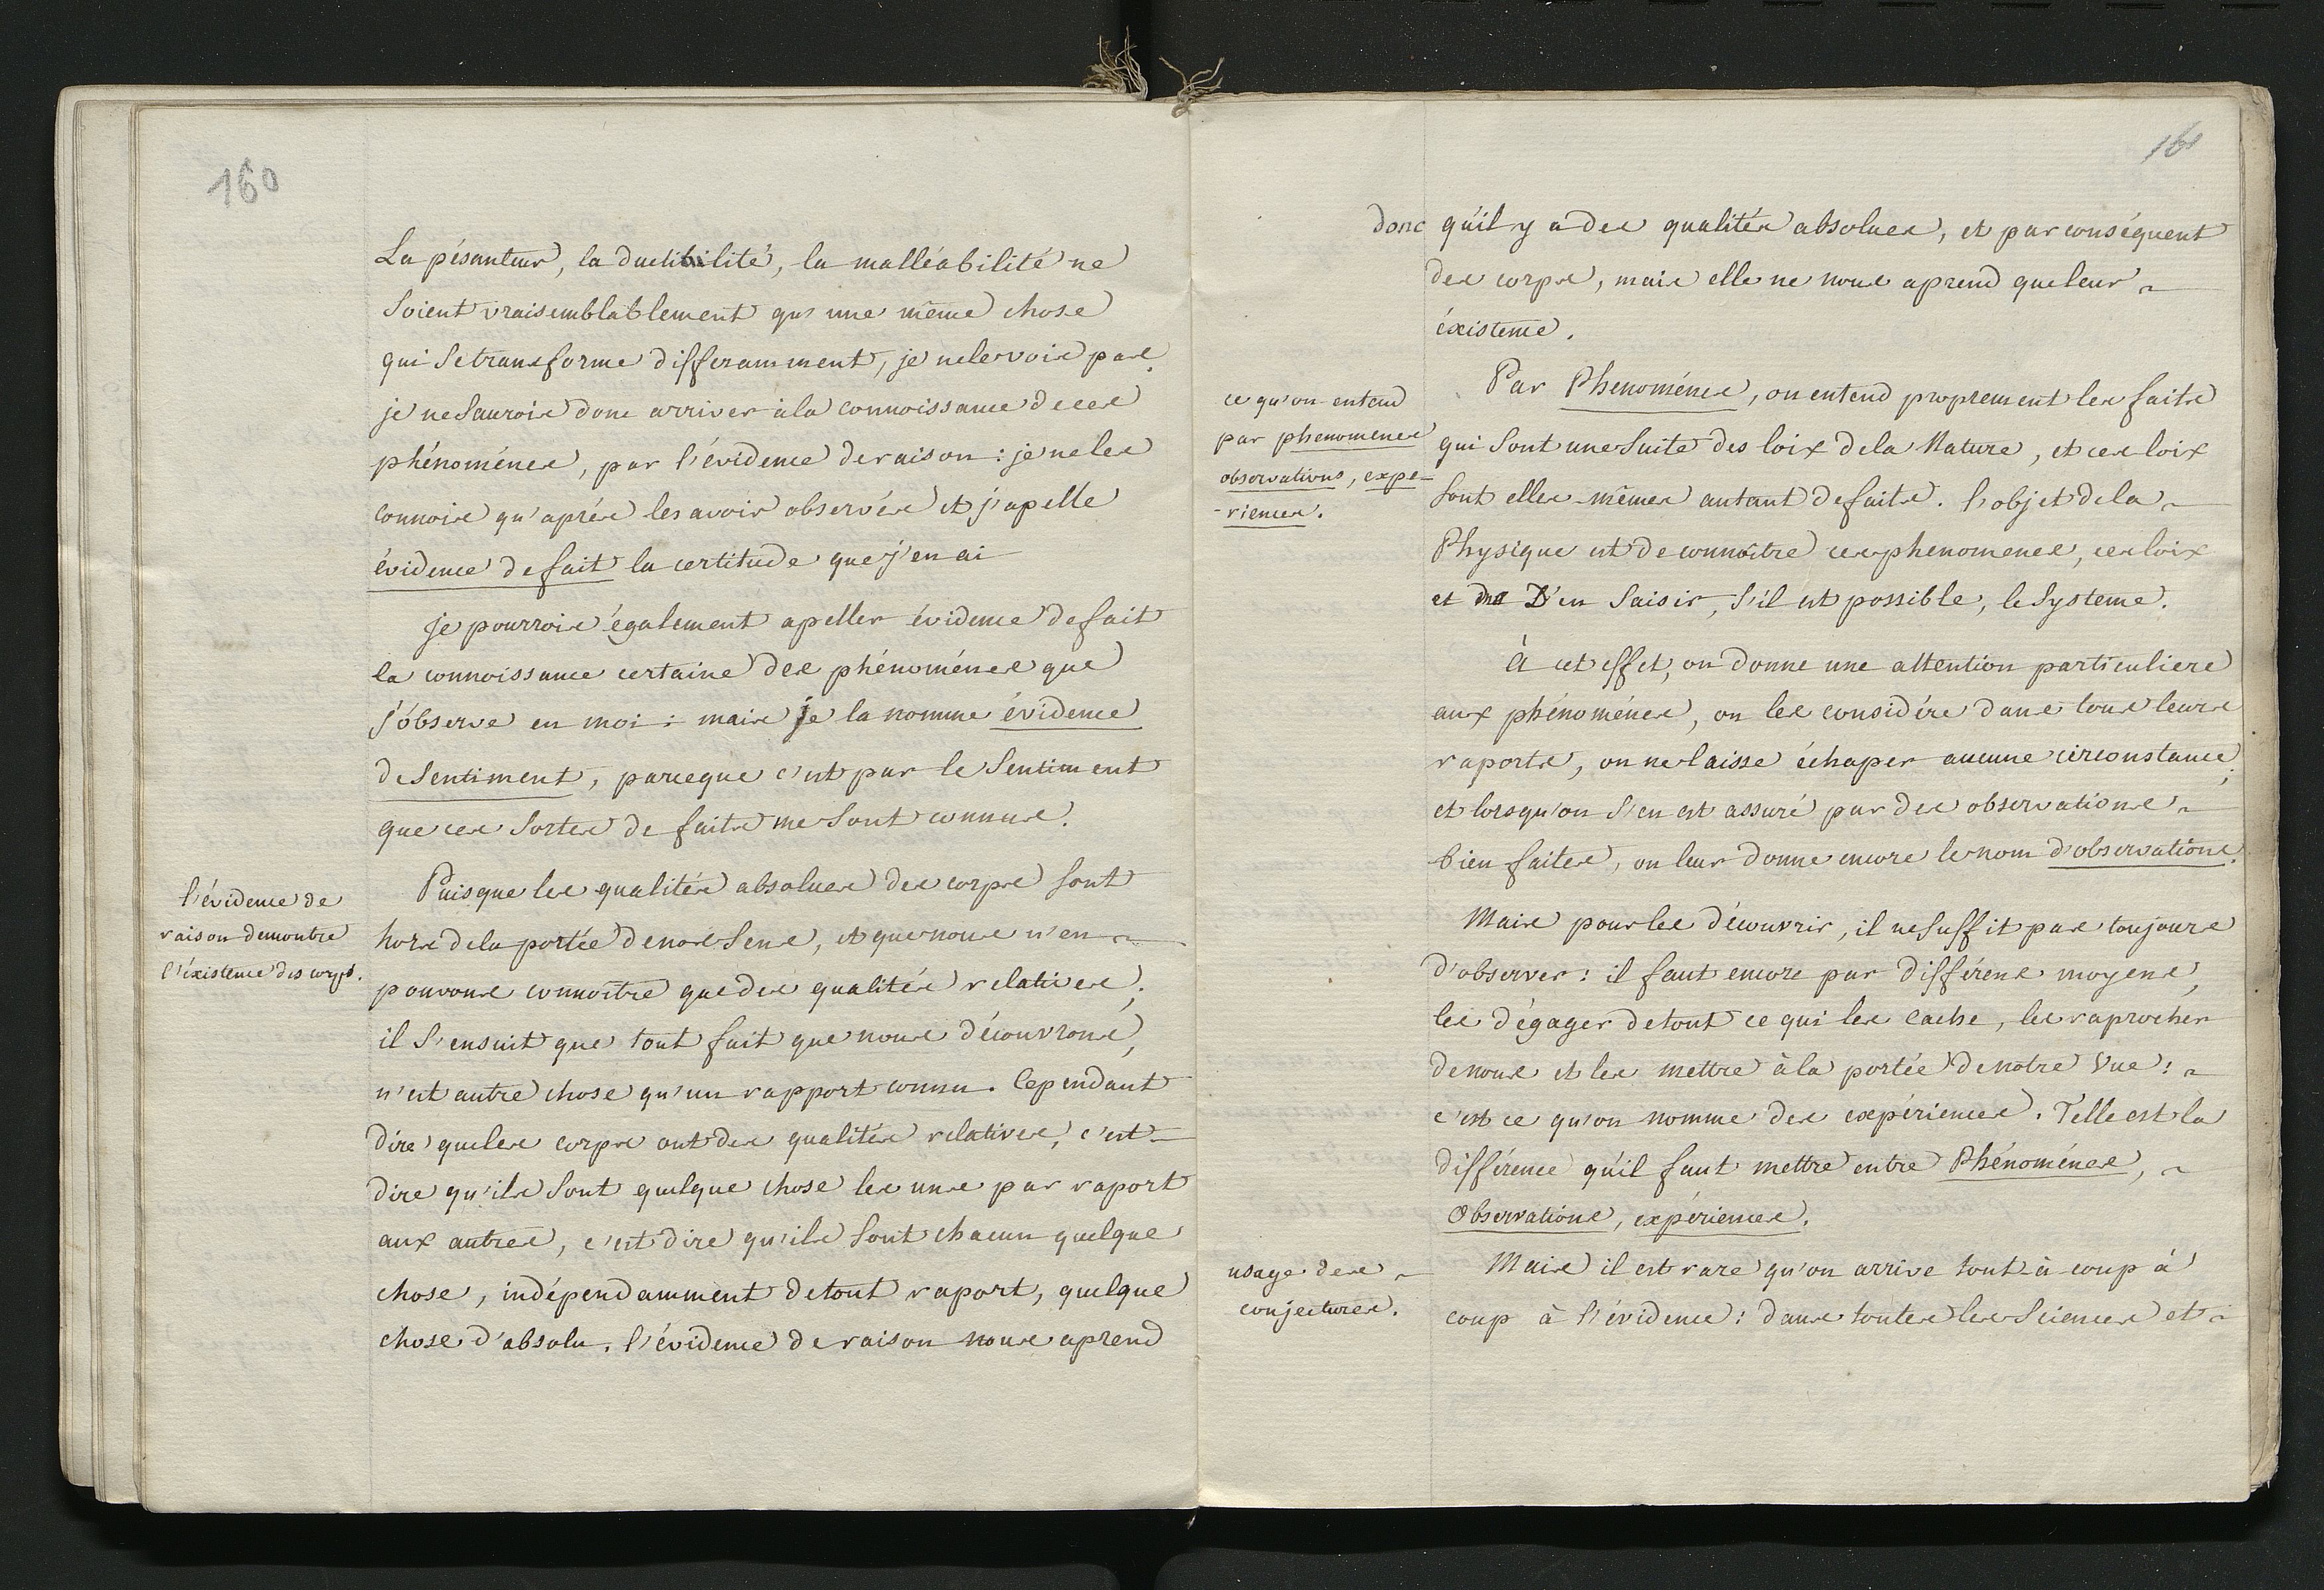 160
La pésanteur, la ductibilité, la malléabilité ne
Soient vraisemblablement qu'une même chose
qui Se transforme differamment, je ne le vois pas.
je ne Saurois donc arriver à la connoissance de ces
phénoménes, par l'évidence de raison : je ne les
connois qu'aprés les avoir observés et j'apelle
évidence de fait la certitude que j'en ai
je pourrois également apeller évidence de fait
la connoissance certaine des phénoménes que
j'observe en moi : mais je la nomme évidence
de Sentiment, parceque c'est par le Sentiment
que ces Sortes de faits me Sont connus.
l'évidence de
raison demontre
l'éxistence des corps.
Puisque les qualités absolues des corps Sont
hors de la portée de nos Sens, et que nous n'en
pouvons connoitre que des qualités relatives ;
il S'ensuit que tout fait que nous découvrons,
n'est autre chose qu'un rapport connu. Cependant
dire que les corps ont des qualités relatives, c'est
dire qu'ils Sont quelque chose les uns par raport
aux autres, c'est dire qu'ils Sont chacun quelque
chose, indépendamment de tout raport, quelque
chose d'absolu. l'évidence de raison nous aprend
161
donc qu'il y a des qualités absolues, et par conséquent
des corps, mais elle ne nous aprend que leur
éxistence.
ce qu'on entend
par phenomenes
observations, expe-
-riences.
Par Phenoménes, on entend proprement les faits
qui Sont une Suite des loix de la Nature, et ces loix
Sont elles-mêmes autant de faits. l'objet de la
Physique est de connoître ces phenomenes, ces loix
et D'en Saisir, S'il est possible, le Systeme.
À cet effet, on donne une attention particuliere
aux phénoménes, on les considére dans tous leurs
raports, on ne laisse échaper aucune circonstance ;
et lorsqu'on S'en est assuré par des observations
bien faites, on leur donne encore le nom d'observations.
Mais pour les découvrir, il ne Suffit pas toujours
d'observer : il faut encore par différens moyens,
les dégager de tout ce qui les cache, les raprocher
de nous et les mettre à la portée de notre Vue :
c'est ce qu'on nomme des expériences. Telle est la
différence qu'il faut mettre entre Phénoménes,
Observations, expériences.
usage des
conjectures.
Mais il est rare qu'on arrive tout-à coup à
coup à l'évidence : dans toutes les Sciences et